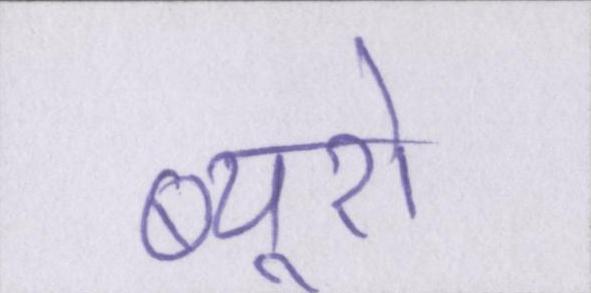 ब्यूरो